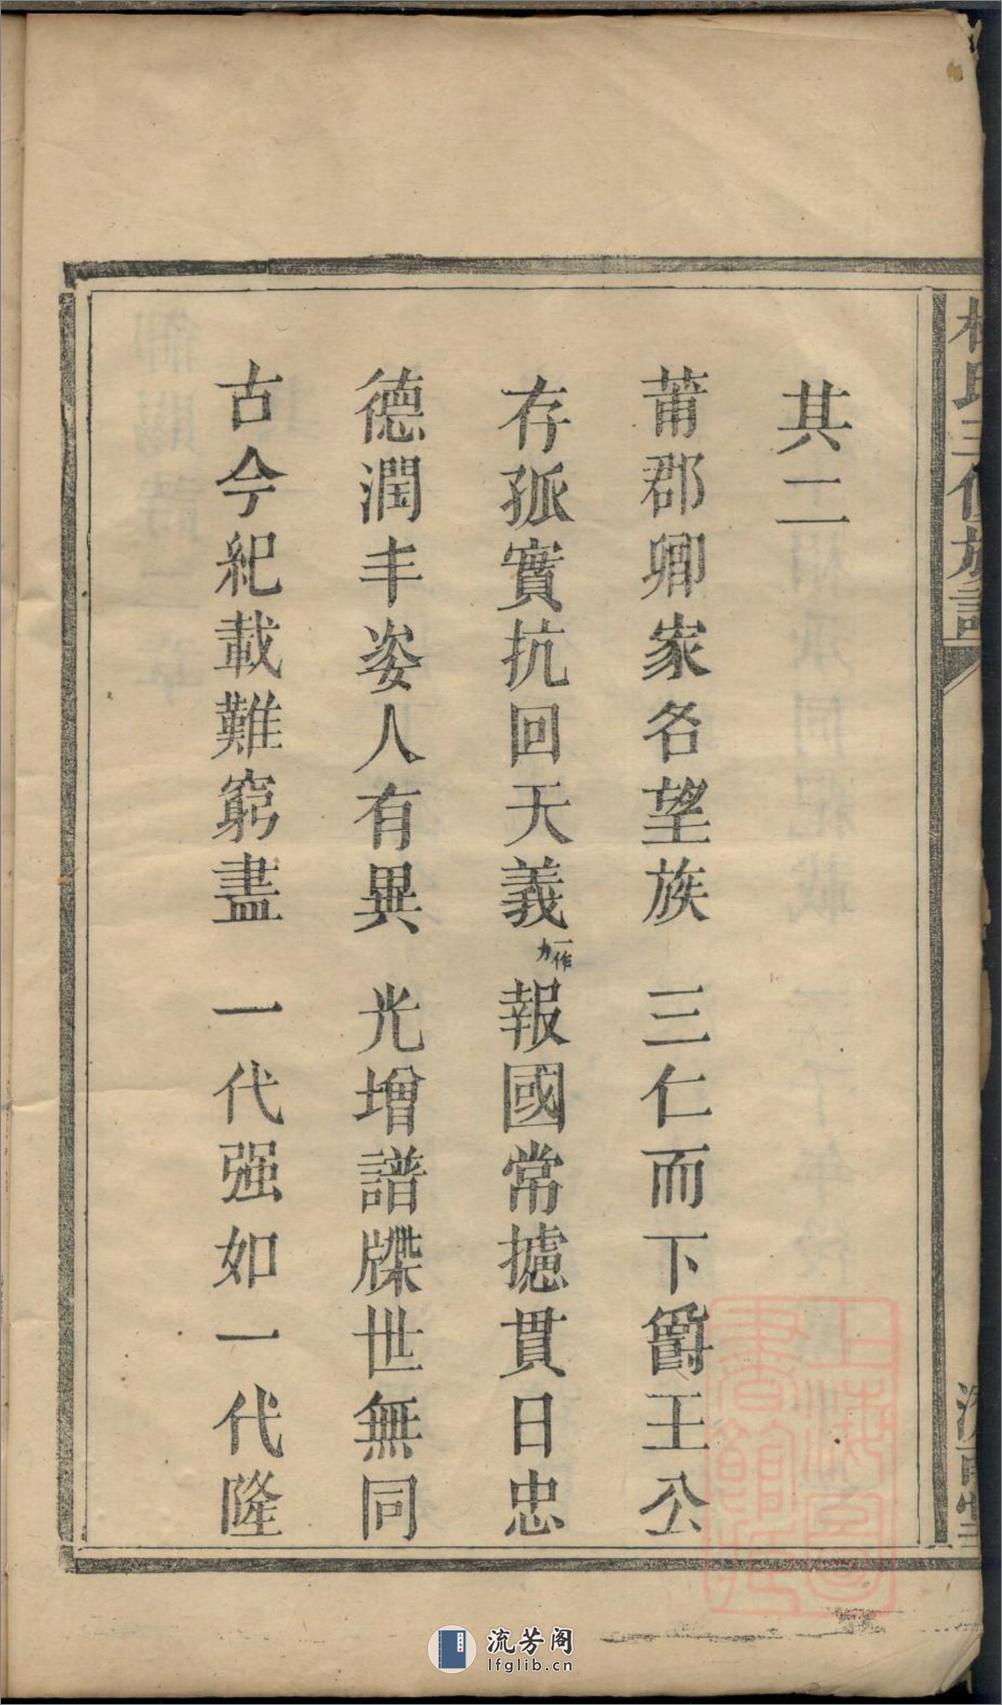 其二
莆郡卿家名望族　三仁而下爵王公
存孤實抗回天義一作力　報國常攄貫日忠
德潤丰姿人有異　光增譜牒世無同
古今紀載難窮盡　一代强如一代隆
林氏三修族譜
濟南堂
上海圖書館藏
流芳阁
lfglib.cn